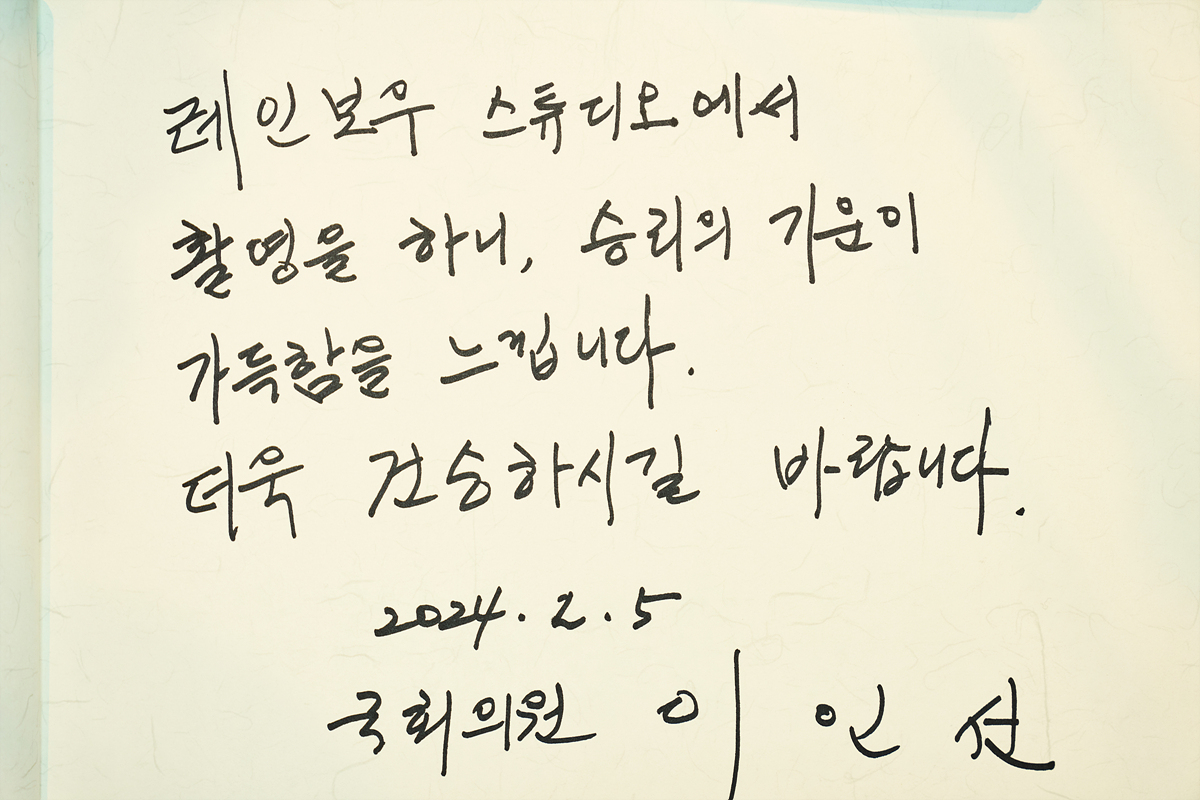 레인보우 스튜디오에서
촬영을 하니, 승리의 기운이
가득함을 느낍니다.
더욱 건승하시길 바랍니다.
2024.2.5
국회의원 이인선